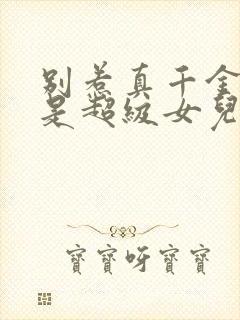 别惹真千金
是超级女兒
寶寶呀寶寶